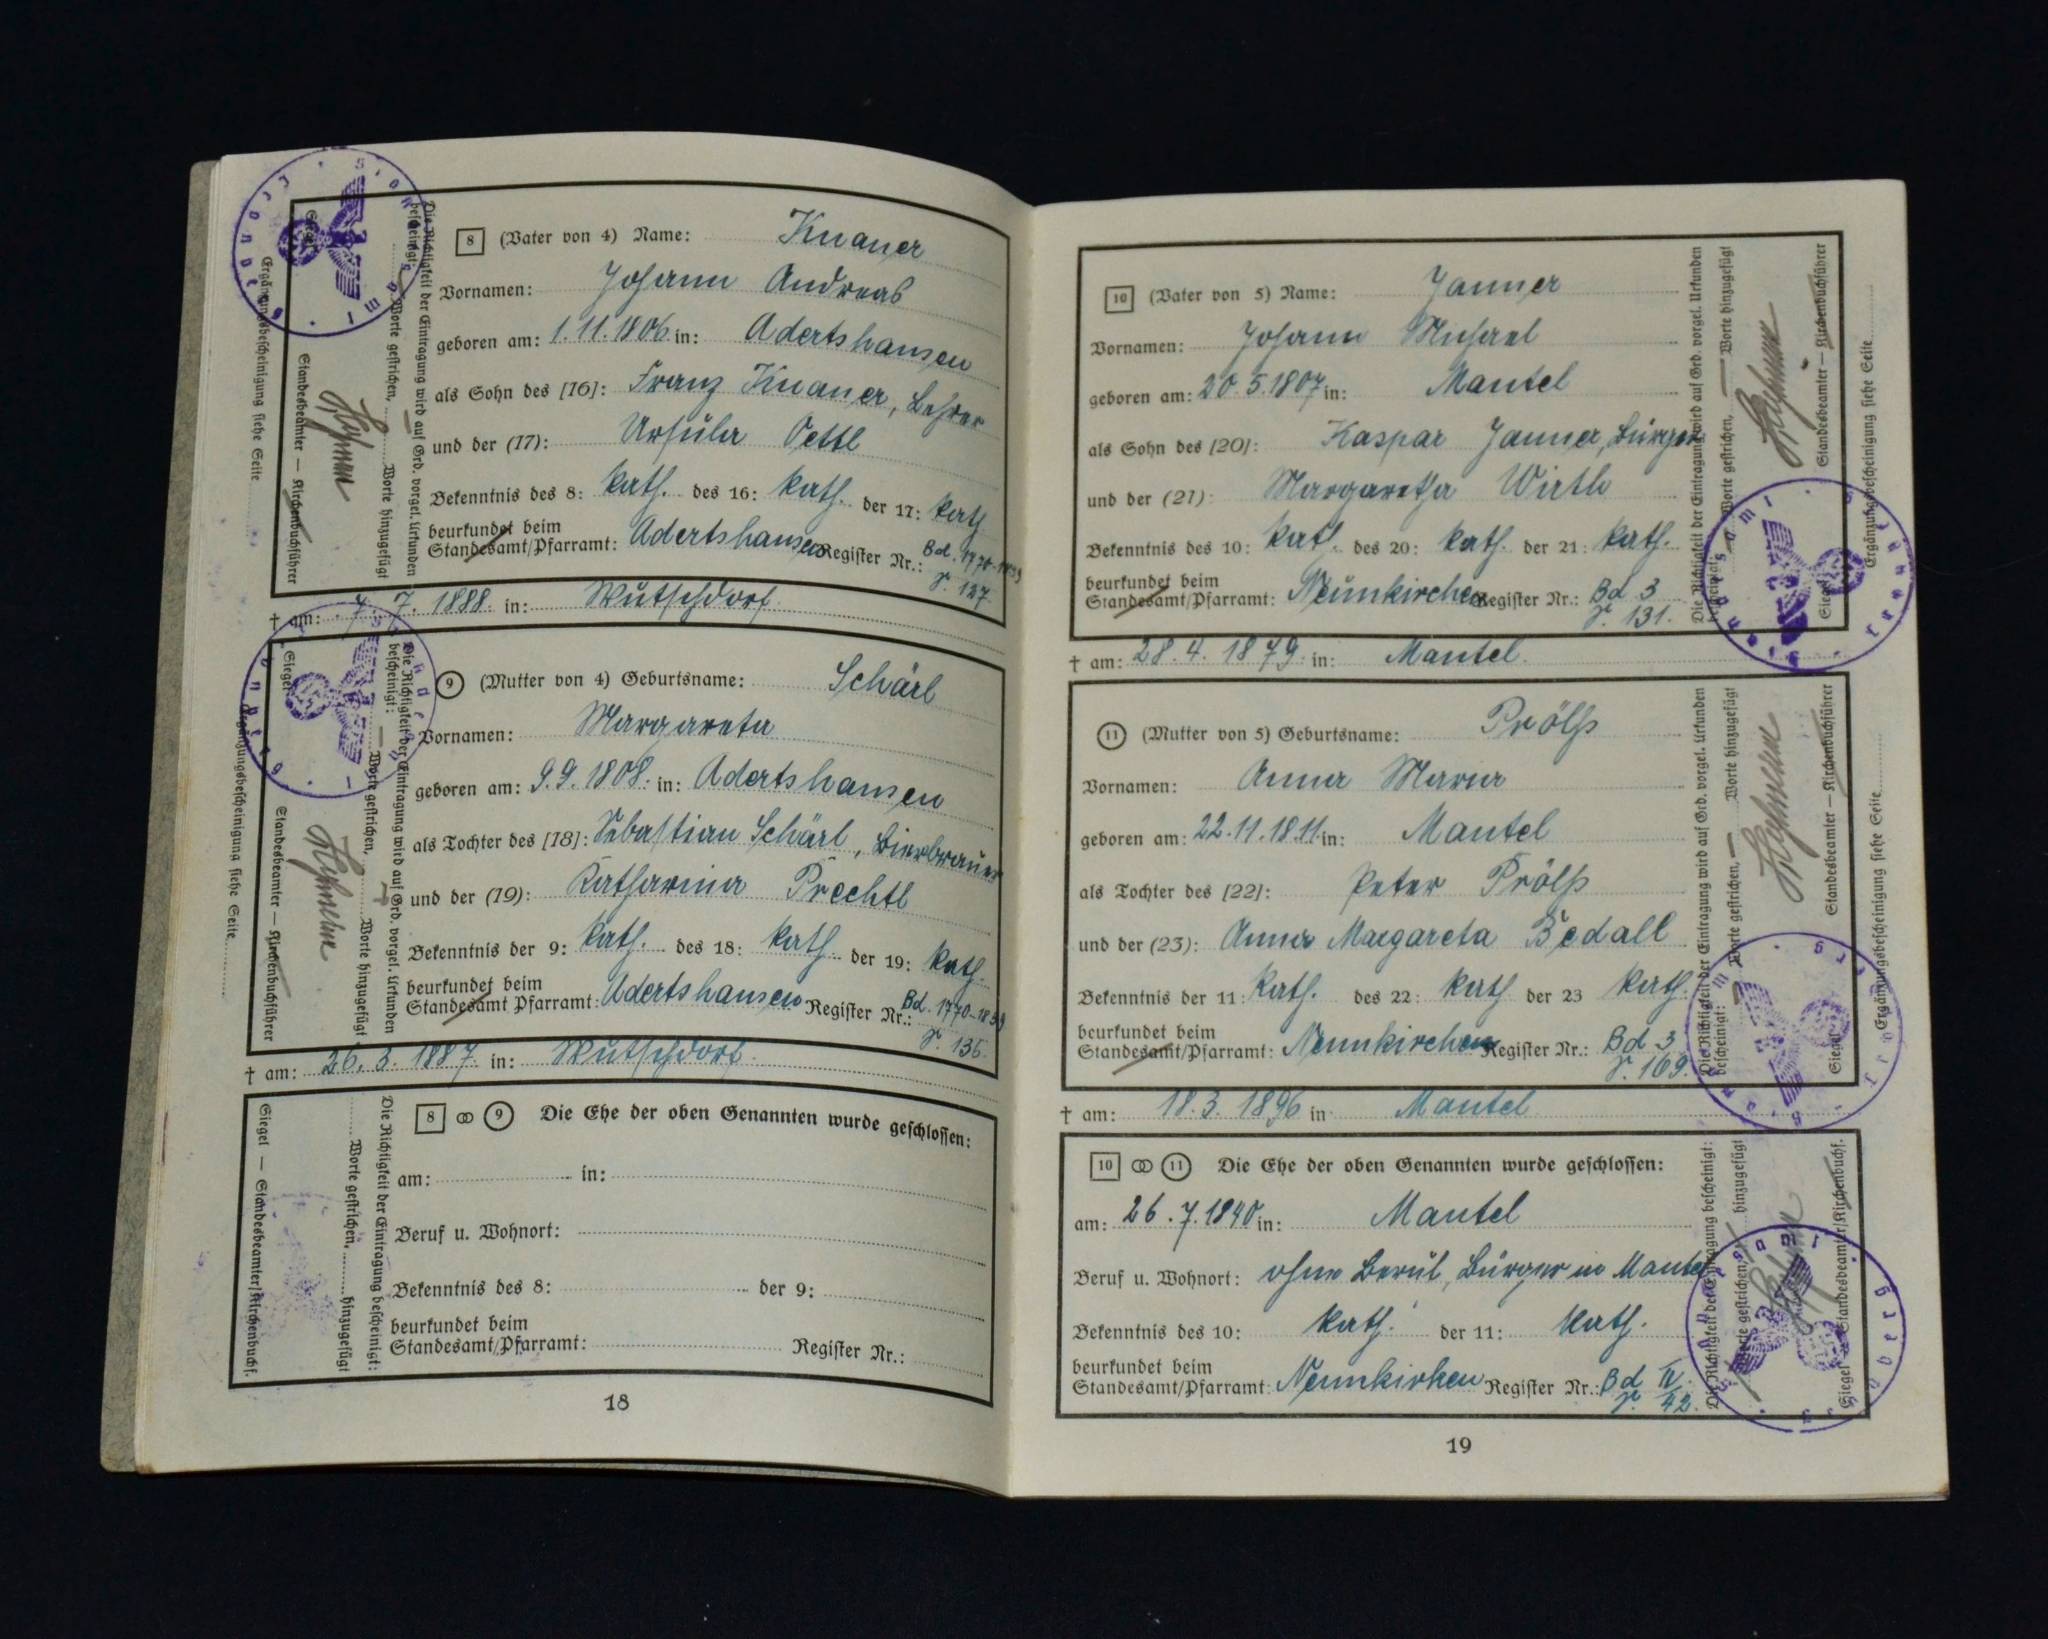 8 (Vater von 4) Name: Knauer
Vornamen: Johann Andreas
geboren am: 1.11.1806 in: Adertshausen
als Sohn des [16]: Franz Knauer, Lehrer
und der (17): Ursula Oettl
Bekenntnis des 8: kath. des 16: kath. der 17: kath
beurkundet beim
Standesamt/Pfarramt: Adertshausen Register Nr.: Bd. 1770-1839
S. 127
† am: 7. 7. 1888. in: Wutschdorf
9 (Mutter von 4) Geburtsname: Schärl
Vornamen: Margareta
geboren am: 9.9.1808. in: Adertshausen
als Tochter des [18]: Sebastian Schärl, Bierbrauer
und der (19): Katharina Prechtl
Bekenntnis der 9: kath. des 18: kath der 19: kath.
beurkundet beim
Standesamt Pfarramt: Adertshausen Register Nr.: Bd. 1770-1839
S. 135.
† am: 26. 3. 1887. in: Wutschdorf.
8 ⚭ 9 Die Ehe der oben Genannten wurde geschlossen:
am: in:
Beruf u. Wohnort:
Bekenntnis des 8: der 9:
beurkundet beim
Standesamt/Pfarramt: Register Nr.:
18
Die Richtigkeit der Eintragung wird auf Grd. vorgel. Urkunden
bescheinigt: — Worte gestrichen, — Worte hinzugefügt
Siegel Standesbeamter — Kirchenbuchführer
Ergänzungsbescheinigung siehe Seite
Die Richtigkeit der Eintragung wird auf Grd. vorgel. Urkunden
bescheinigt: — Worte gestrichen, Worte hinzugefügt
Siegel Standesbeamter — Kirchenbuchführer
Ergänzungsbescheinigung siehe Seite
Die Richtigkeit der Eintragung bescheinigt:
Worte gestrichen, hinzugefügt
Siegel — Standesbeamter/Kirchenbuchf.
10 (Vater von 5) Name: Janner
Vornamen: Johann Michael
geboren am: 20.5.1807 in: Mantel
als Sohn des [20]: Kaspar Janner, Bürger
und der (21): Margaretha Wirth
Bekenntnis des 10: kath. des 20: kath. der 21: kath.
beurkundet beim
Standesamt/Pfarramt: Neunkirchen Register Nr.: Bd 3
S. 131.
† am: 28. 4. 1879. in: Mantel.
11 (Mutter von 5) Geburtsname: Prölß
Vornamen: Anna Maria
geboren am: 22.11.1811. in: Mantel
als Tochter des [22]: Peter Prölß
und der (23): Anna Margareta Bedall
Bekenntnis der 11: kath. des 22: kath der 23 kath.
beurkundet beim
Standesamt/Pfarramt: Neunkirchen Register Nr.: Bd 3
S. 169.
† am: 18. 3. 1896 in Mantel
10 ⚭ 11 Die Ehe der oben Genannten wurde geschlossen:
am: 26.7.1840 in: Mantel
Beruf u. Wohnort: ohne Beruf, Bürger in Mantel
Bekenntnis des 10: kath. der 11: kath.
beurkundet beim
Standesamt/Pfarramt: Neunkirchen Register Nr.: Bd IV.
S. 42.
19
Die Richtigkeit der Eintragung wird auf Grd. vorgel. Urkunden
bescheinigt: Worte gestrichen, — Worte hinzugefügt
Siegel Standesbeamter — Kirchenbuchführer
Ergänzungsbescheinigung siehe Seite
Die Richtigkeit der Eintragung wird auf Grd. vorgel. Urkunden
bescheinigt: Worte gestrichen, — Worte hinzugefügt
Siegel Standesbeamter — Kirchenbuchführer
Ergänzungsbescheinigung siehe Seite
Die Richtigkeit der Eintragung bescheinigt:
Worte gestrichen, hinzugefügt
Siegel Standesbeamter/Kirchenbuchf.